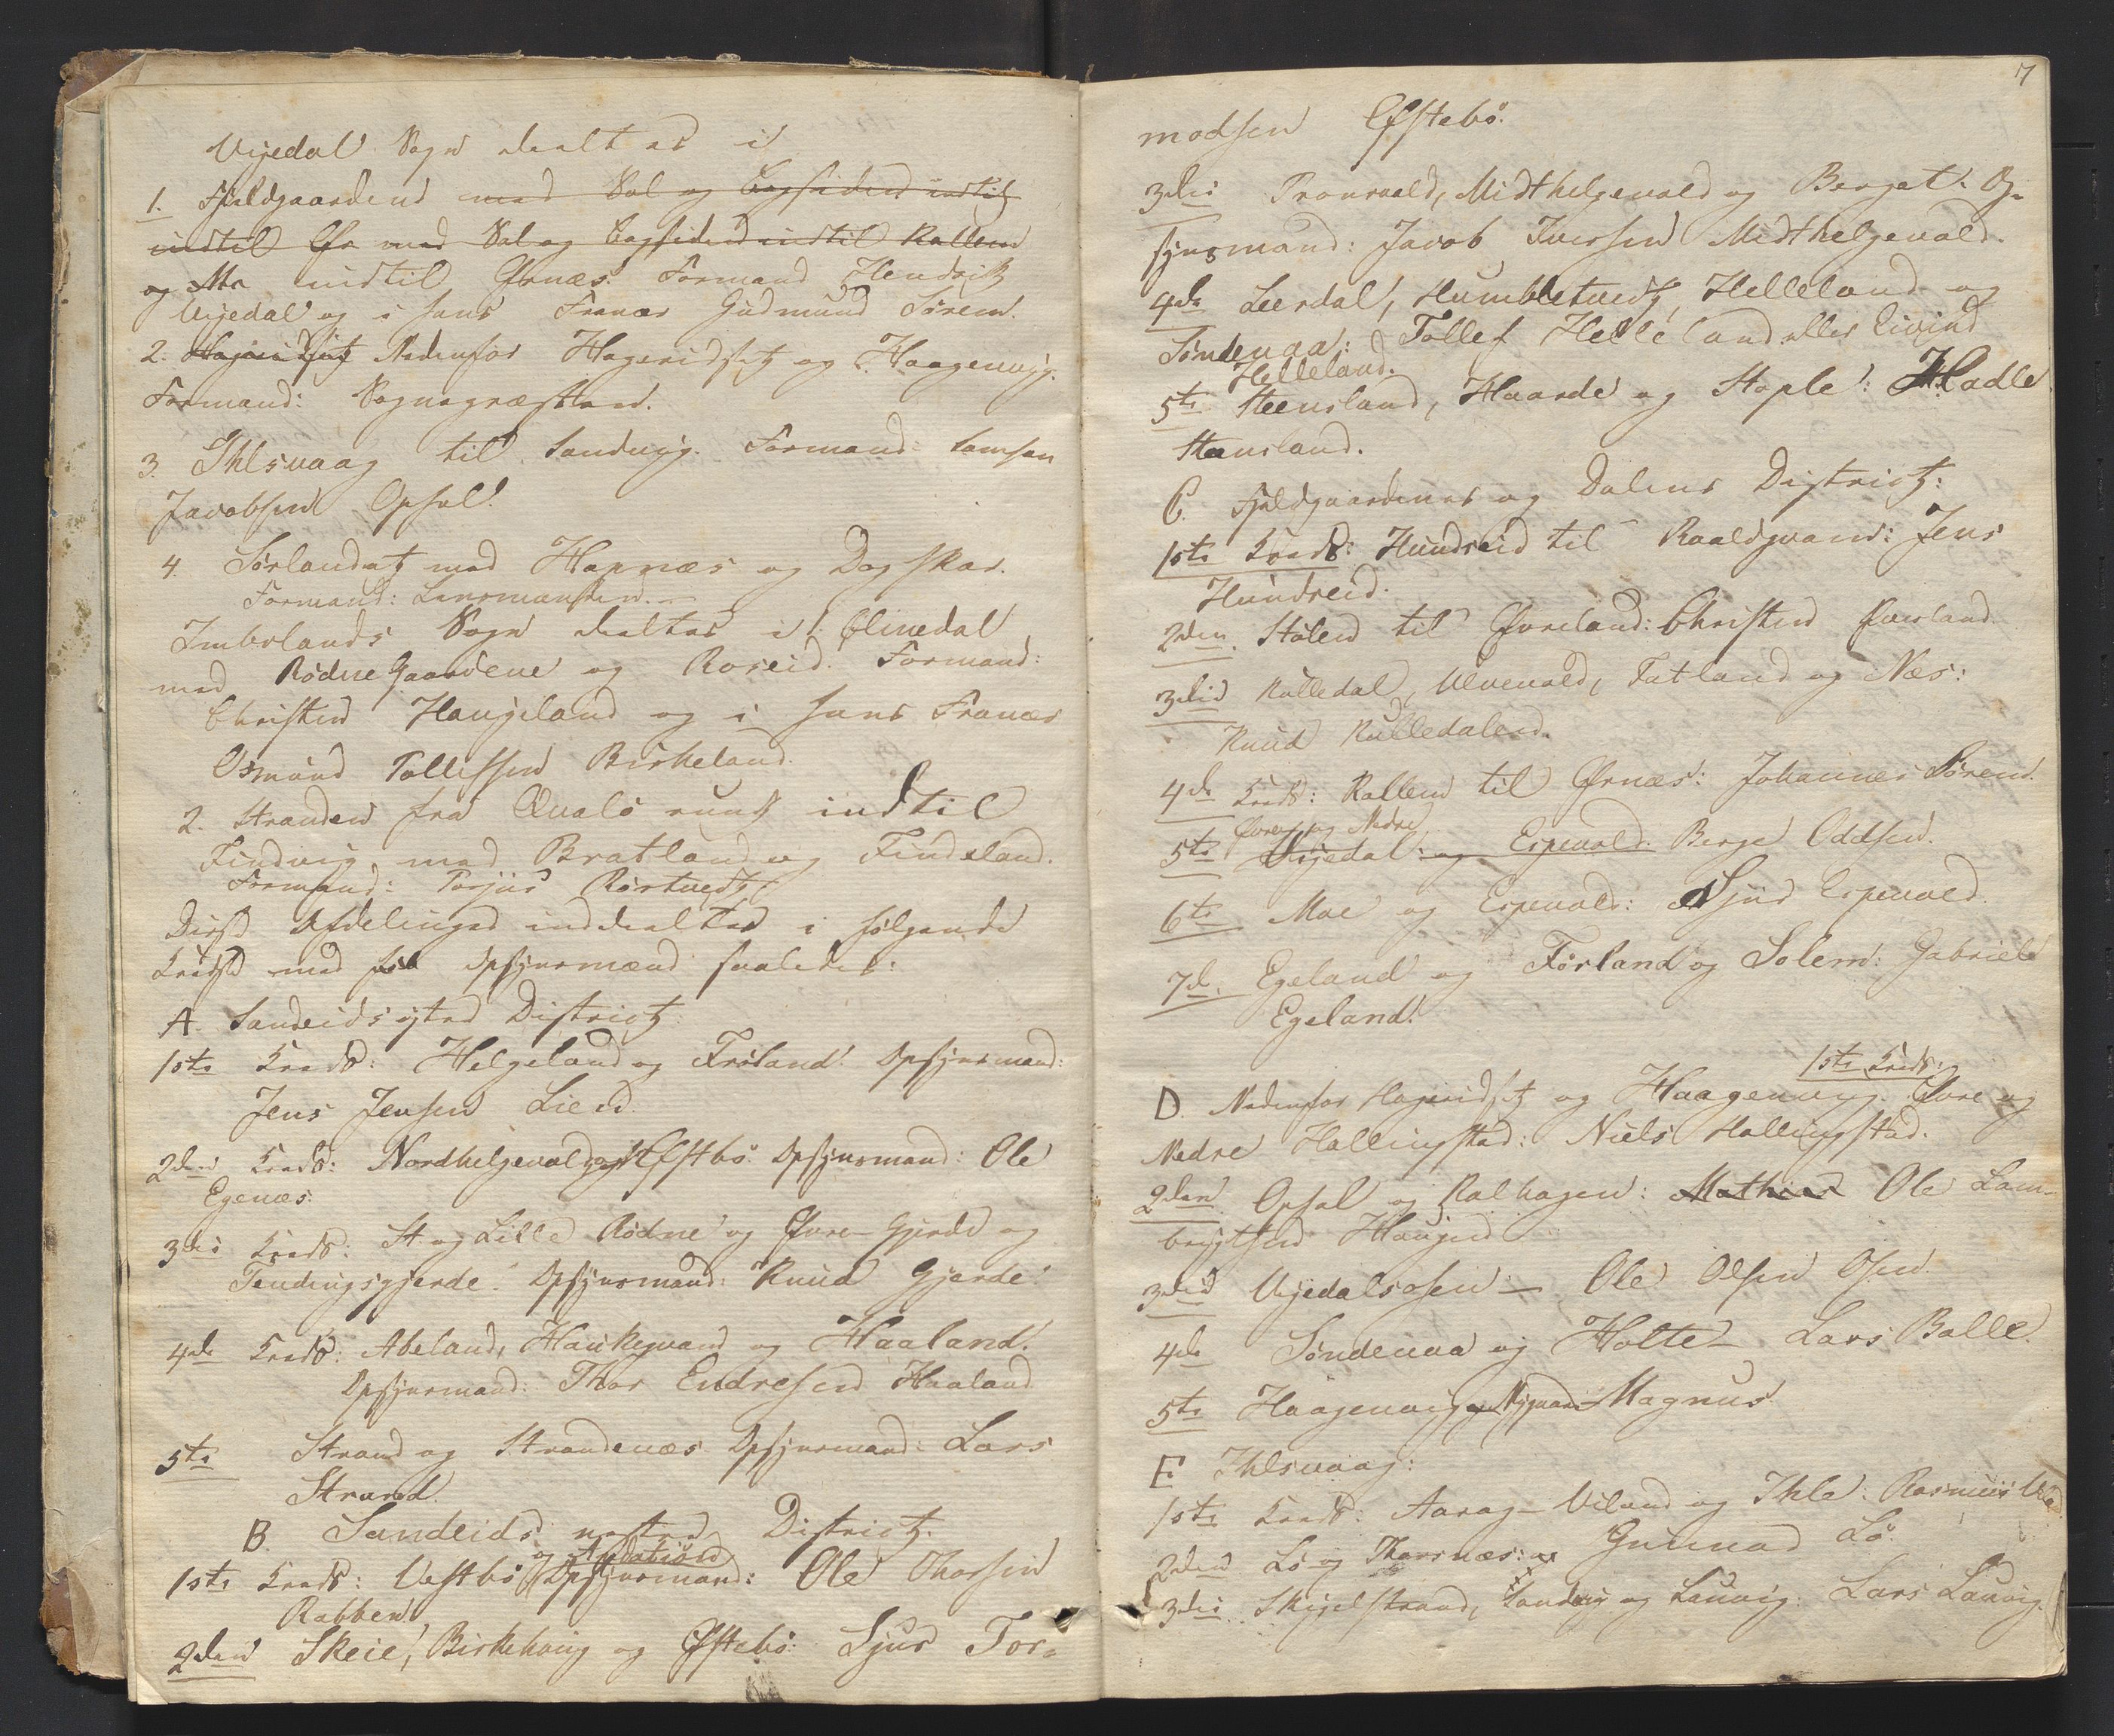 Vigedal Sogn deeltes i
1. Fjeldgaardene med Dal og Bogsiden indtil
indtil Øv med Dal og Bogsiden indtil Kallem
og Mo indtil Ørnæs. Formand Hendrik
Vigedal og i hans Fravær Gudmund Sørem.
2. Hageridset Nedenfor Hageridset og Haagenvig.
Formand: Sognepræsten.
3. Ihlsvaag til Sandvig. Formand: Samson
Jacobsen Opsal.
4. Sørlandet med Hapnæs og Dagskar.
Formand: Lensmanden.
Imbslands Sogn deeltes i 1. Ølmedal
med Rødne Gaardene og Roseid. Formand:
Christen Haugeland og i hans Fravær
Osmund Tollefsen Birkeland.
2. Stranden fra Qualø rundt indtil
Findvig med Bratland og Findeland.
Formand: Torjus Rørtvedt
Disse Afdelinger inddeeltes i følgende
Kredse med sine Opsynsmænd saaledes:
A. Sandeids ytre District
1ste Kreds: Helgeland og Frøland. Opsynsmand:
Jens Jensen Lien
2den Kreds: Nordhelgevold og Østbø. Opsynsmand: Ole
Egenæs.
3die Kreds: St og Lille Rødne og Øvre Gjerde og
Tendingsgjerde. Opsynsmand: Knud Gjerde.
4de Kreds: Abeland, Haukevand og Haaland.
Opsynsmand: Thor Endresen Haaland
5te Strand og Strandenæs Opsynsmand: Lars
Strand.
B. Sandeids nestre District.
1ste Kreds: Vestbø og Opsynsmand: Ole Thorsen
Rabben
2den Skeie, Birkehaug og Østebø: Sjur Tor-
7
modsen Østebø.
3die Tronvold, Midthelgevold og Berget. Op-
synsmand: Jacob Iversen Midthelgevold.
4de Leerdal, Humbletvedt, Helleland og
Søndenaa: Tollef Helleland eller Eivind
Helleland.
5te Steensland, Haarde og Stople: Hadle
Steensland.
C. Fjeldgaardenes og Dalens District:
1ste Kreds: Hundseid til Roaldqvam: Jens
Hundseid.
2den Stølen til Øvreland: Christen Øvreland
3die Kulledal, Ulvevold, Fatland og Næs:
Knud Kulledalen.
4de Kreds: Kallem til Ørnæs: Johannes Sørem.
5te Øvre og Nedre Vigedal: og Espevold. Berge Oddsen.
6te Moe og Espevold: Sjur Espevold
7de Egeland og Førland og Solem: Gabriel
Egeland.
D. Nedenfor Hageridset og Haagenvig. 1ste Kreds: Øvre og
Nedre Hallingstad: Niels Hallingstad.
2den Opsal og Kalhagen: Mathias Ole Lam-
brigtsen Haugen
3die Vigedalsosen – Ole Olsen Osen
4de Søndenaa og Holte – Lars Balle.
5te Haagenvig og Mygnaa – Magnus
E Ihlsvaag:
1ste Kreds: Aarag – Viland og Ihle: Rasmus
2den Lø og Thorsnæs: Gunnar Lø.
3die Skygelstrand, Sandvig og Lauvig. Lars Lauvig.